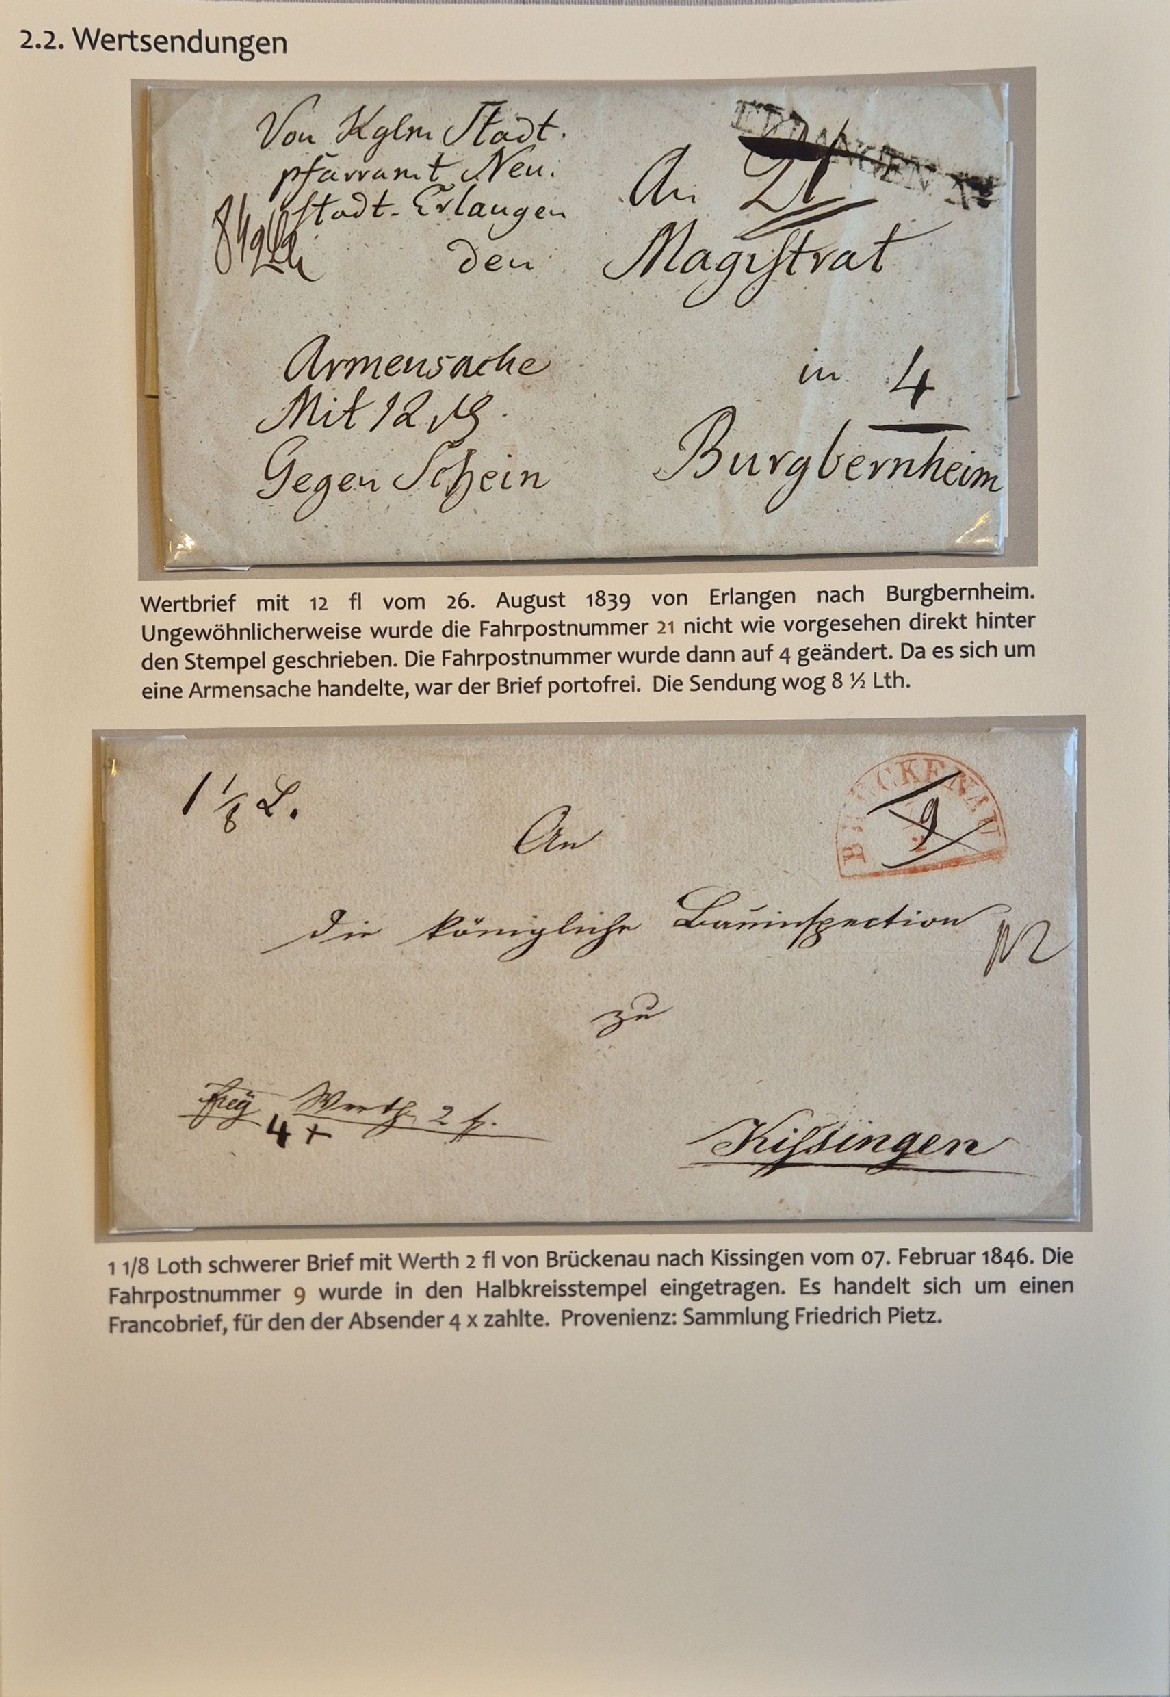 2.2. Wertsendungen
Von Kglm Stadt.
pfarramt Neu.
stadt-Erlangen
ERLANGEN
An 21
den Magistrat
Armensache
Mit 12
Gegen Schein
in 4
Burgbernheim
Wertbrief mit 12 fl vom 26. August 1839 von Erlangen nach Burgbernheim.
Ungewöhnlicherweise wurde die Fahrpostnummer 21 nicht wie vorgesehen direkt hinter
den Stempel geschrieben. Die Fahrpostnummer wurde dann auf 4 geändert. Da es sich um
eine Armensache handelte, war der Brief portofrei. Die Sendung wog 8 ½ Lth.
1 1/8 L.
BRÜCKENAU
9
An
die königliche Bauinspection
zu
frey Werth 2 f.
4 x
Kissingen
1 1/8 Loth schwerer Brief mit Werth 2 fl von Brückenau nach Kissingen vom 07. Februar 1846. Die
Fahrpostnummer 9 wurde in den Halbkreisstempel eingetragen. Es handelt sich um einen
Francobrief, für den der Absender 4 x zahlte. Provenienz: Sammlung Friedrich Pietz.